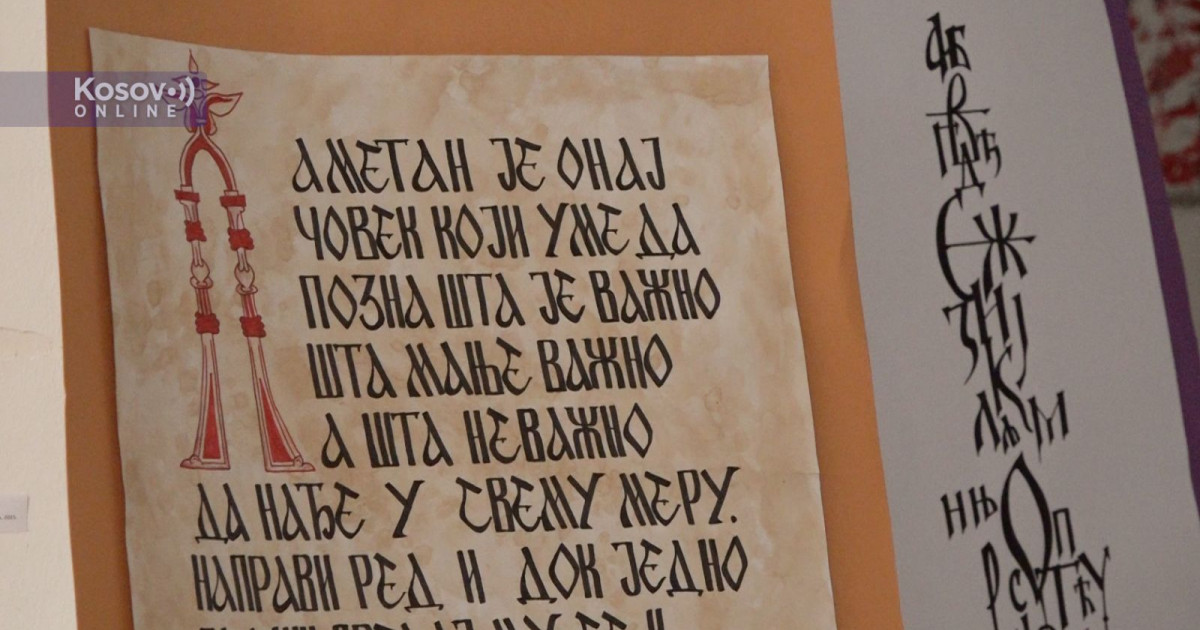 Kosovo
ONLINE
ПАМЕТАН ЈЕ ОНАЈ
ЧОВЕК КОЈИ УМЕ ДА
ПОЗНА ШТА ЈЕ ВАЖНО
ШТА МАЊЕ ВАЖНО
А ШТА НЕВАЖНО
ДА НАЂЕ У СВЕМУ МЕРУ.
НАПРАВИ РЕД И ДОК ЈЕДНО
Е Ж
З И Ј
К
Н Њ О П
Р С Т Ћ У